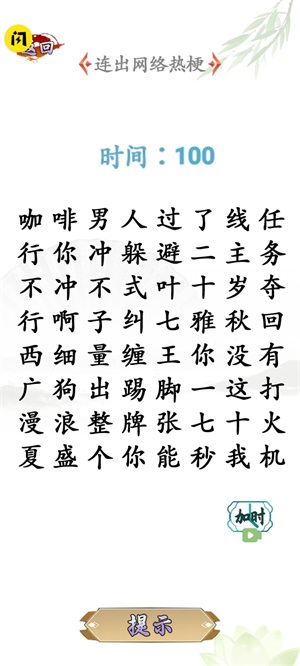 闪
回
连出网络热梗
时间：100
咖啡男人过了线任
行你冲躲避二主务
不冲不式叶十岁夺
行啊子纠七雅秋回
西细量缠王你没有
广狗出踢脚一这打
漫浪整牌张七十火
夏盛个你能秒我机
加时
提示